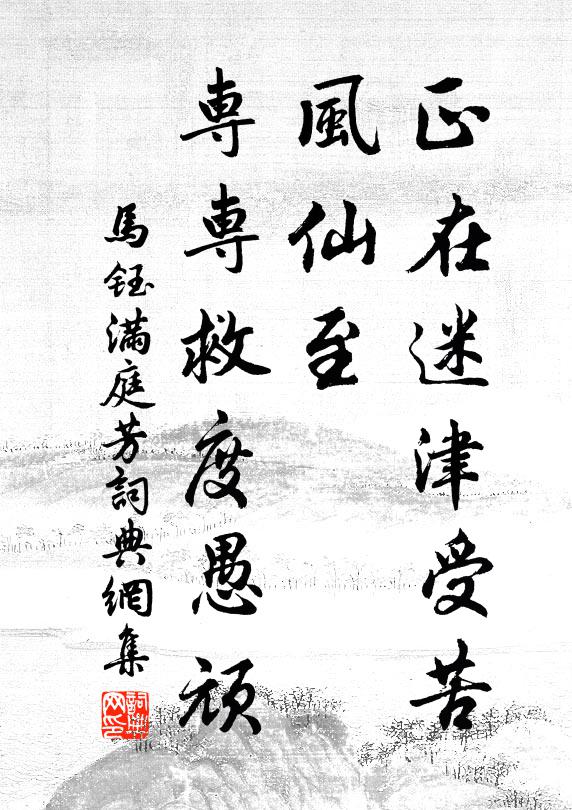 正在迷津受苦
風仙至
專專救度愚頑
馬鈺滿庭芳詞典網集